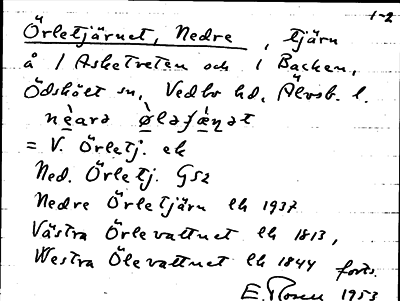 1-2
Örletjärnet, Nedre, tjärn
å 1 Asketreten och 1 Backen,
Ödskölt sn, Vedbo hd, Älvsb. l.
= V. Örletj. ek
Ned. Örletj. GS2
Nedre Örletjärn lk 1937
Västra Örlevattnet lk 1813,
Westra Ölevattnet lk 1844 forts.
E. Rosen 1953